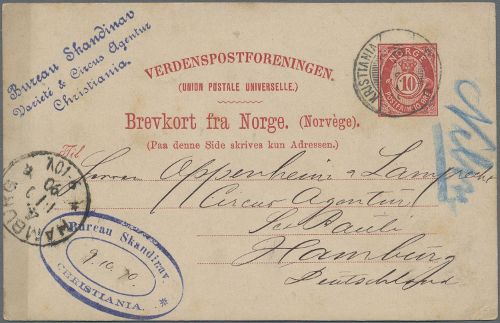 Bureau Skandinav
Varieté & Circus Agentur
Christiania.
VERDENSPOSTFORENINGEN.
(UNION POSTALE UNIVERSELLE.)
Brevkort fra Norge. (Norvège.)
(Paa denne Side skrives kun Adressen.)
KRISTIANIA
NORGE
10
Til
Herren Oppenheim & Lamprecht
Circus Agentur
Sct Pauli
Hamburg
Deutschland
HAMBURG
Bureau Skandinav.
9.10.90.
CHRISTIANIA.